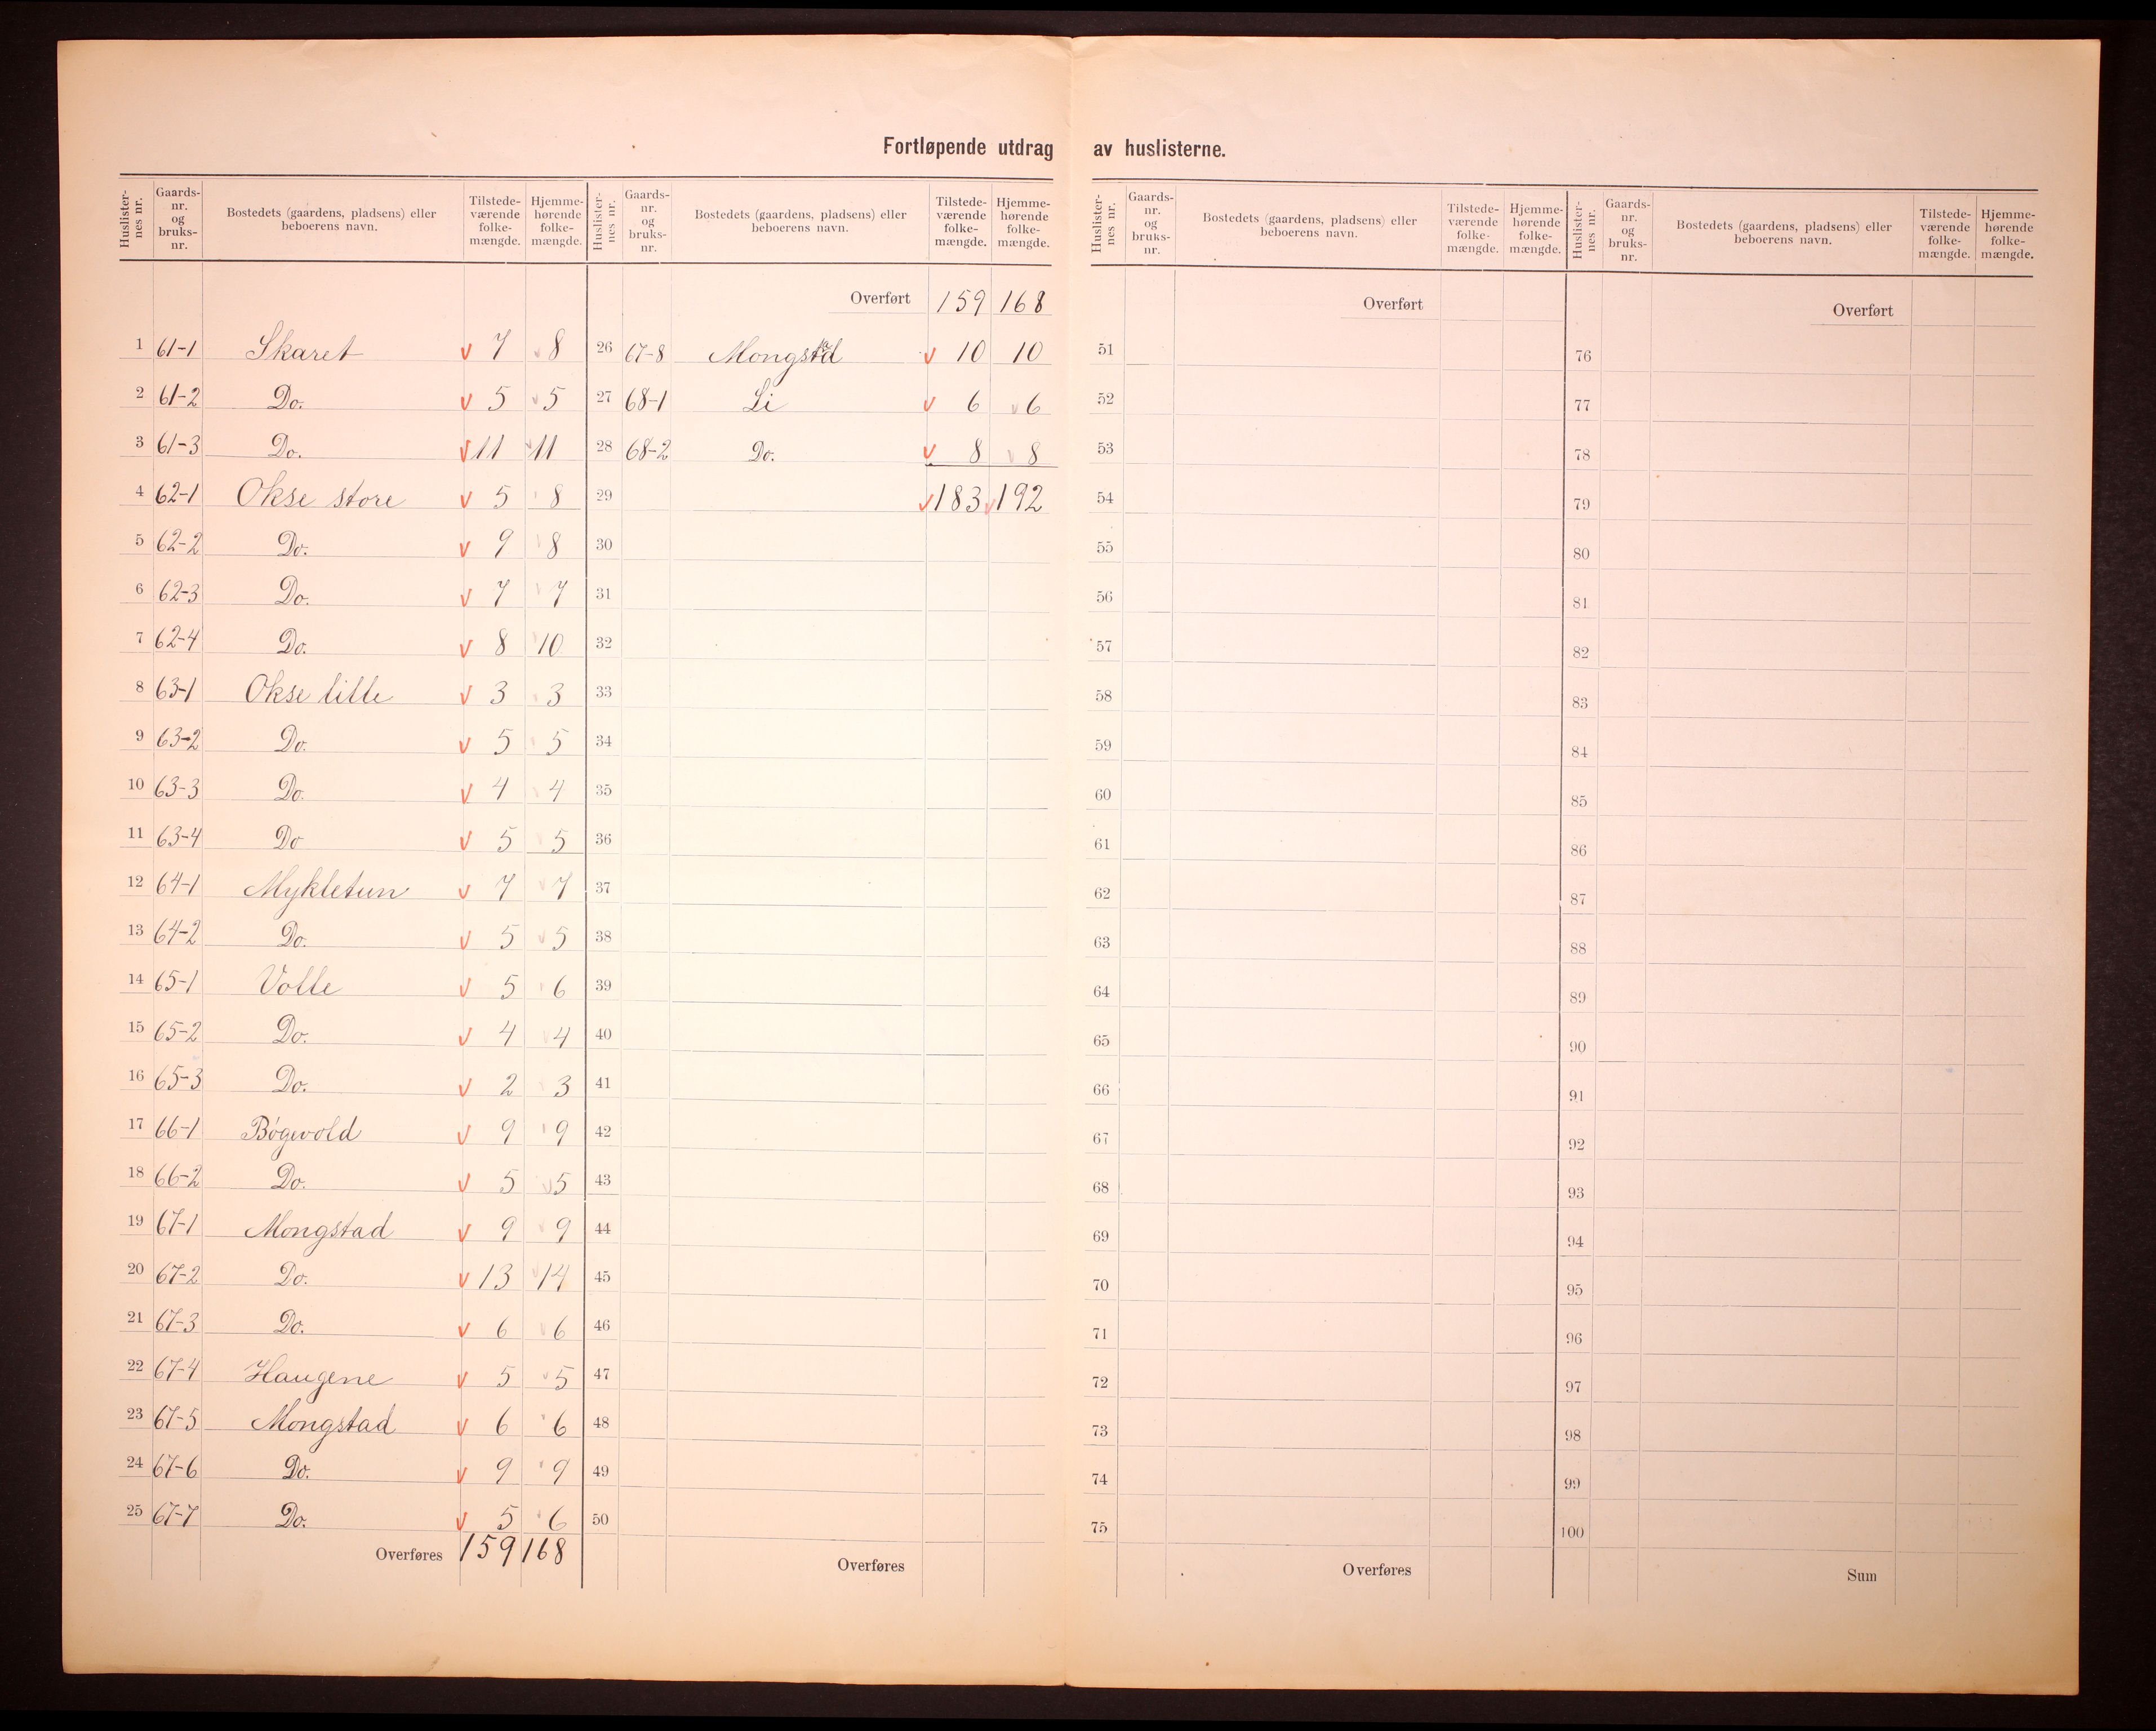 Fortløpende utdrag av huslisterne.
Huslister-nes nr. Gaards-nr. og bruks-nr. Bostedets (gaardens, pladsens) eller beboerens navn. Tilstede-værende folke-mængde. Hjemme-hørende folke-mængde.
1 61-1 Skaret v 7 v 8
2 61-2 Do. v 5 v 5
3 61-3 Do. v 11 v 11
4 62-1 Okse store v 5 8
5 62-2 Do. v 9 8
6 62-3 Do. v 7 7
7 62-4 Do. v 8 10
8 63-1 Okse lille v 3 3
9 63-2 Do. v 5 5
10 63-3 Do. v 4 4
11 63-4 Do v 5 5
12 64-1 Mykletun v 7 v 7
13 64-2 Do. v 5 v 5
14 65-1 Volle v 5 6
15 65-2 Do. v 4 v 4
16 65-3 Do. v 2 3
17 66-1 Bøgevold v 9 9
18 66-2 Do. v 5 v 5
19 67-1 Mongstad v 9 v 9
20 67-2 Do. v 13 v 14
21 67-3 Do. v 6 v 6
22 67-4 Haugene v 5 v 5
23 67-5 Mongstad v 6 6
24 67-6 Do. v 9 9
25 67-7 Do. v 5 6
Overføres 159 168
Huslister-nes nr. Gaards-nr. og bruks-nr. Bostedets (gaardens, pladsens) eller beboerens navn. Tilstede-værende folke-mængde. Hjemme-hørende folke-mængde.
Overført 159 168
26 67-8 Mongstad v 10 10
27 68-1 Li v 6 v 6
28 68-2 Do. v 8 v 8
29 v 183 v 192
30
31
32
33
34
35
36
37
38
39
40
41
42
43
44
45
46
47
48
49
50
Overføres
Huslister-nes nr. Gaards-nr. og bruks-nr. Bostedets (gaardens, pladsens) eller beboerens navn. Tilstede-værende folke-mængde. Hjemme-hørende folke-mængde.
Overført
51
52
53
54
55
56
57
58
59
60
61
62
63
64
65
66
67
68
69
70
71
72
73
74
75
Overføres
Huslister-nes nr. Gaards-nr. og bruks-nr. Bostedets (gaardens, pladsens) eller beboerens navn. Tilstede-værende folke-mængde. Hjemme-hørende folke-mængde.
Overført
76
77
78
79
80
81
82
83
84
85
86
87
88
89
90
91
92
93
94
95
96
97
98
99
100
Sum